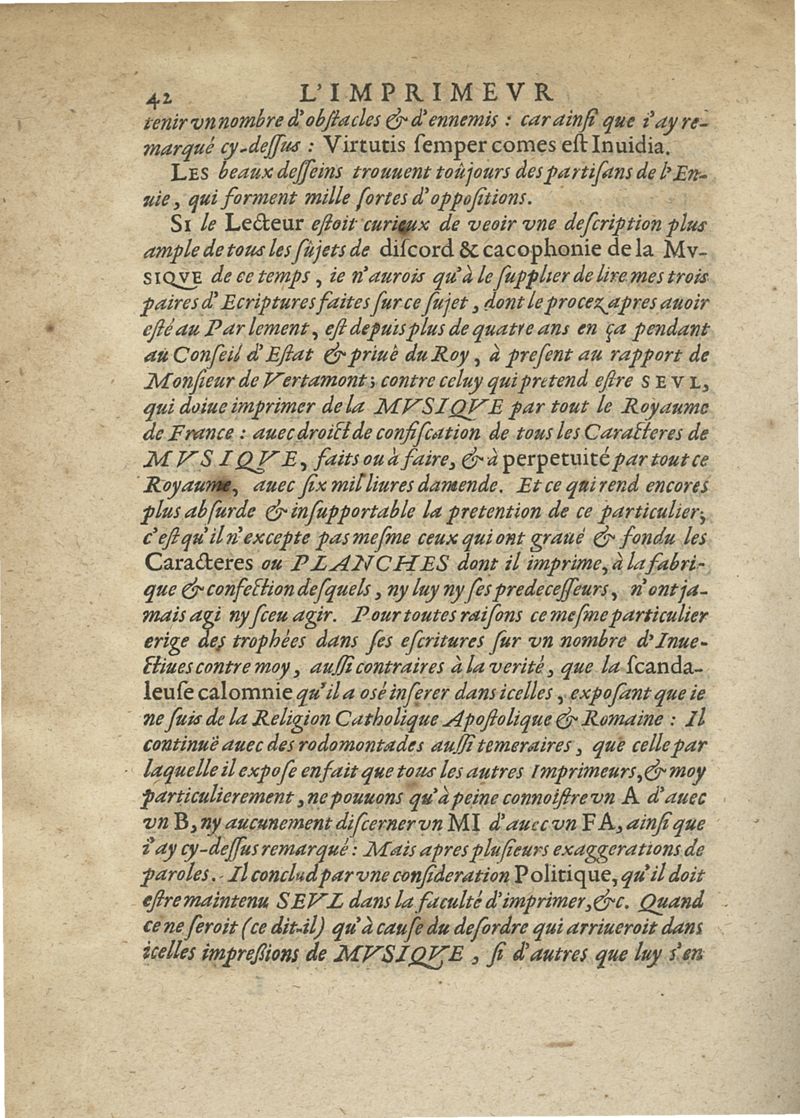 42 L'IMPRIMEVR
tenir vn nombre d'obſtacles & d'ennemis : car ainſi que i'ay re-
marqué cy-deſſus : Virtutis ſemper comes eſt Inuidia.
LES beaux deſſeins trouuent toûjours des partiſans de l'En-
uie, qui forment mille ſortes d'oppoſitions.
SI le Lecteur eſtoit curieux de veoir vne deſcription plus
ample de tous les ſujets de diſcord & cacophonie de la MV-
SIQVE de ce temps, ie n'aurois qu'à le ſupplier de lire mes trois
paires d'Ecriptures faites ſur ce ſujet, dont le procez apres auoir
eſté au Parlement, eſt depuis plus de quatre ans en ça pendant
au Conſeil d'Eſtat & priué du Roy, à preſent au rapport de
Monſieur de Vertamont; contre celuy qui pretend eſtre SEVL,
qui doiue imprimer de la MVSIQVE par tout le Royaume
de France : auec droict de confiſcation de tous les Caracteres de
MVSIQVE, faits ou à faire, & à perpetuité par tout ce
Royaume, auec ſix mil liures damende. Et ce qui rend encores
plus abſurde & inſupportable la pretention de ce particulier;
c'eſt qu'il n'excepte pas meſme ceux qui ont graué & fondu les
Caracteres ou PLANCHES dont il imprime, à la fabri-
que & confection deſquels, ny luy ny ſes predeceſſeurs, n'ont ja-
mais agi ny ſceu agir. Pour toutes raiſons ce meſme particulier
erige des trophées dans ſes eſcritures ſur vn nombre d'Inue-
ctiues contre moy, auſſi contraires à la verité, que la ſcanda-
leuſe calomnie qu'il a oſé inſerer dans icelles, expoſant que ie
ne ſuis de la Religion Catholique Apoſtolique & Romaine : Il
continuë auec des rodomontades auſſi temeraires, que celle par
laquelle il expoſe en fait que tous les autres Imprimeurs, & moy
particulierement, ne pouuons qu'à peine connoiſtre vn A d'auec
vn B, ny aucunement diſcerner vn MI d'auec vn FA, ainſi que
i'ay cy-deſſus remarqué : Mais apres pluſieurs exaggerations de
paroles. Il conclud par vne conſideration Politique, qu'il doit
eſtre maintenu SEVL dans la faculté d'imprimer, &c. Quand
ce ne ſeroit (ce dit-il) qu'à cauſe du deſordre qui arriueroit dans
icelles impreſſions de MVSIQVE, ſi d'autres que luy s'en